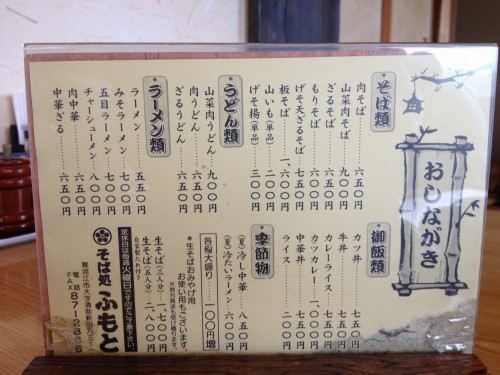 おしながき
そば類
肉そば……六五〇円
山菜肉そば……九〇〇円
ざるそば……六五〇円
もりそば……六五〇円
げそ天ざるそば……七五〇円
板そば……一、六〇〇円
山いも(単品)……二〇〇円
げそ揚(単品)……三〇〇円
うどん類
山菜肉うどん……九〇〇円
肉うどん……六五〇円
ざるうどん……六五〇円
ラーメン類
ラーメン……五五〇円
みそラーメン……七〇〇円
五目ラーメン……七〇〇円
チャーシューメン……八〇〇円
肉中華……六五〇円
中華ざる……六五〇円
御飯類
カツ丼……七五〇円
牛丼……七五〇円
カレーライス……五五〇円
カツカレー……一、〇〇〇円
中華丼……七五〇円
ライス……二〇〇円
季節物
(夏)冷し中華……八五〇円
(夏)冷たいラーメン……六〇〇円
各種大盛り……一〇〇円増
*生そばおみやげ用
お使い用もございます。
生そば(三人分)……一、七〇〇円
生そば(五人分)……二、八〇〇円
定休日は毎週火曜日ですのでご了承下さい。
そば処 ふもと
電話 FAX 87-2806